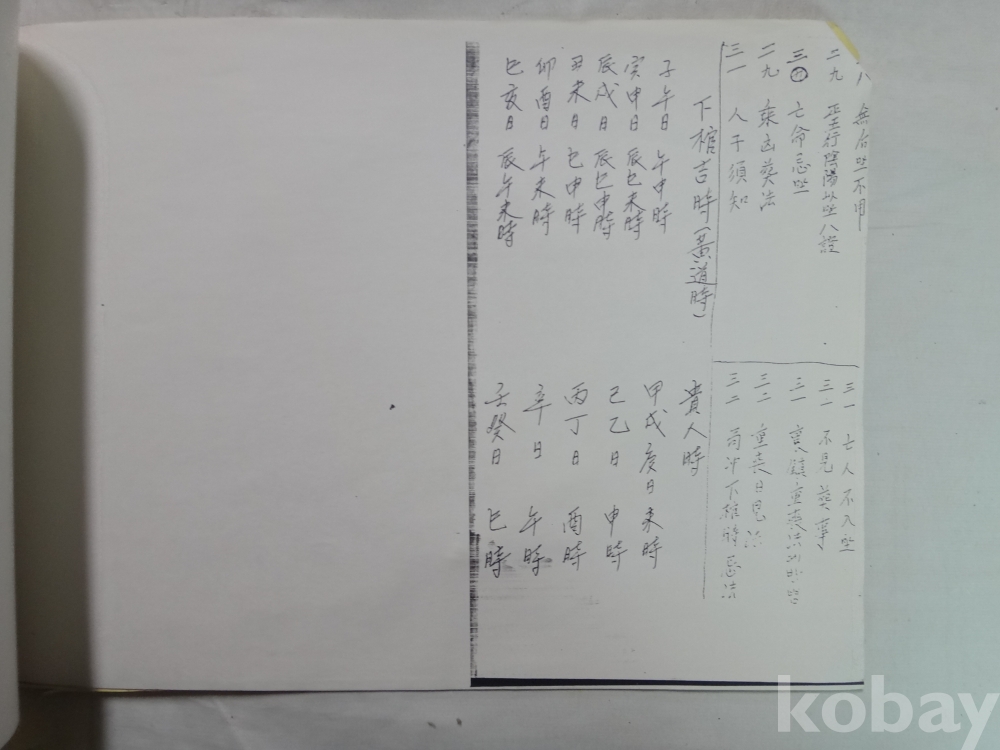 八 無后坐不用
二九 正五行陰陽以坐八證
三十 亡命忌坐
二九 乘凶葬法
三一 人子須知
三一 亡人不入坐
三一 不見葬事
三一 重喪
三二 重喪日見法
三二 下棺時忌法
下棺吉時(黃道時)
子午日 午申時
寅申日 辰巳未時
辰戌日 辰巳申時
丑未日 巳申時
卯酉日 午未時
巳亥日 辰午未時
貴人時
甲戊庚日 未時
己乙日 申時
丙丁日 酉時
辛日 午時
壬癸日 巳時
kobay